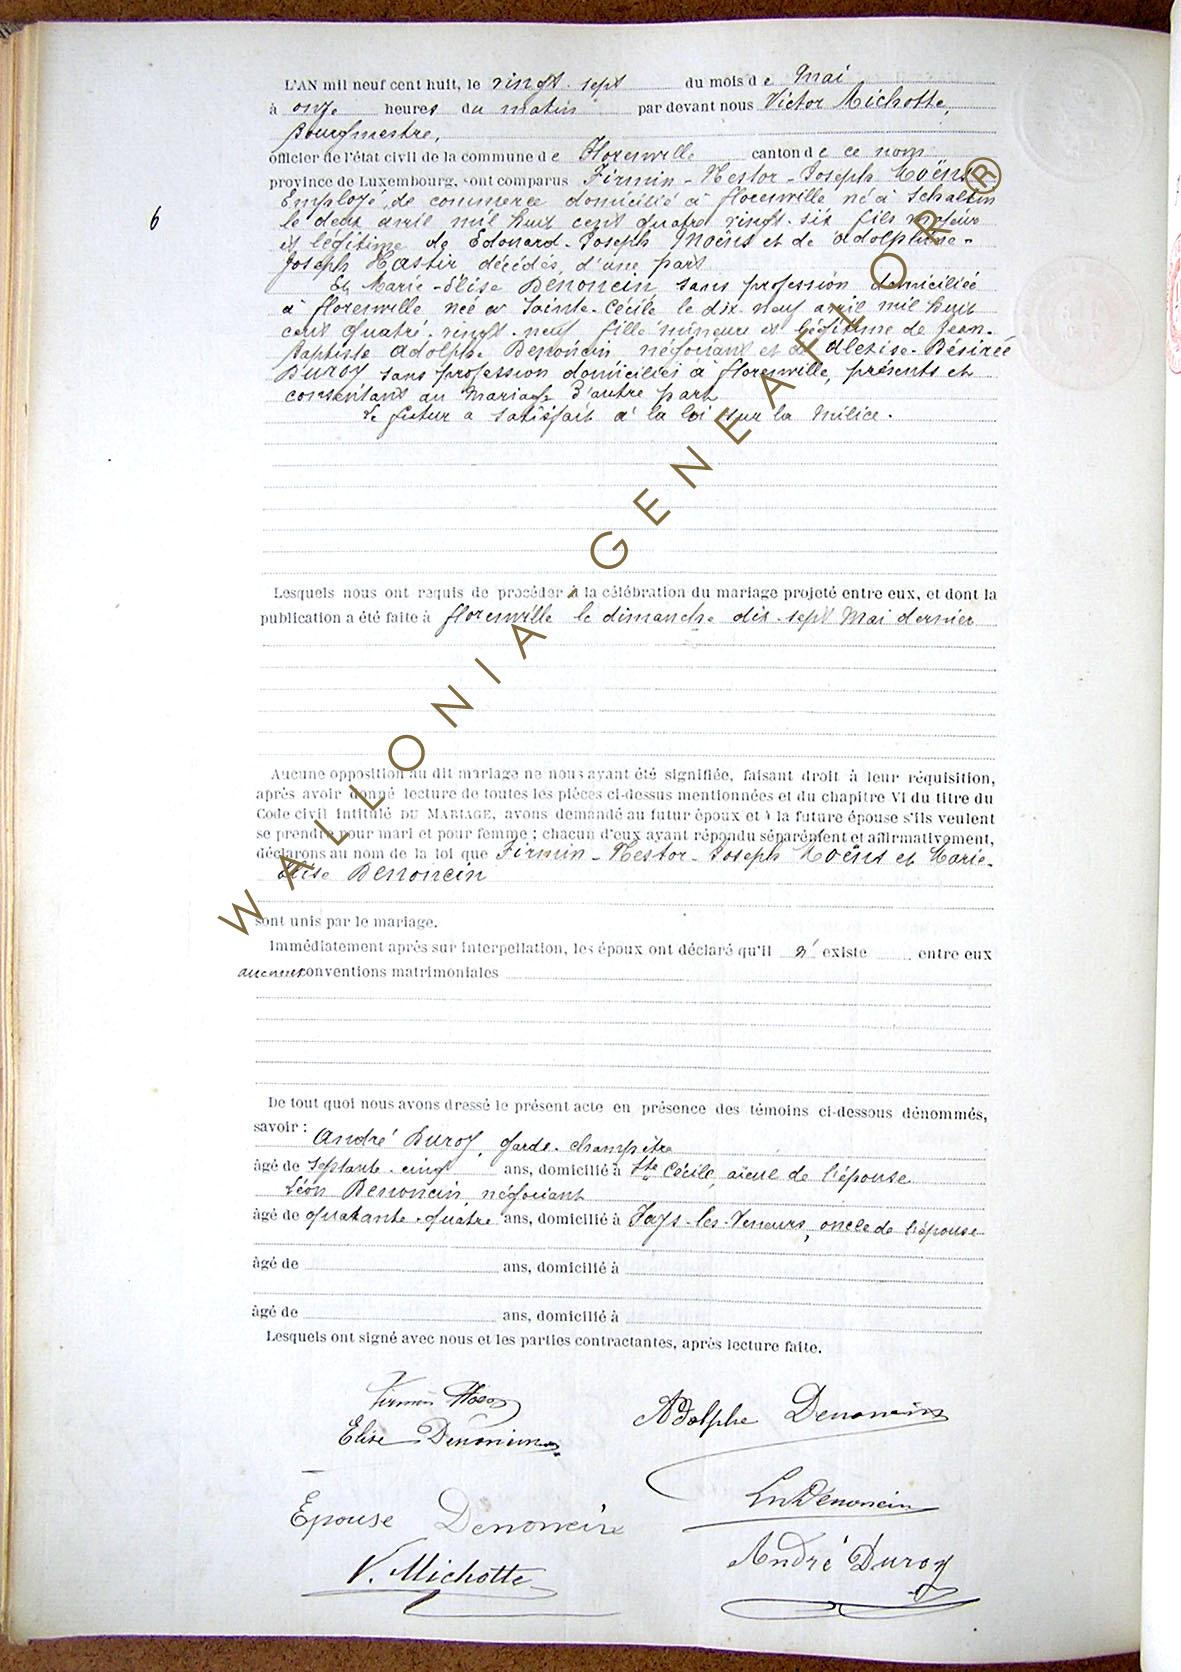 L'AN mil neuf cent huit, le vingt-sept du mois de Mai
à onze heures du matin par devant nous Victor Michotte,
Bourgmestre,
officier de l'état civil de la commune de Florenville canton de ce nom
province de Luxembourg, sont comparus Firmin-Nestor-Joseph Moëns
6
Employé de commerce domicilié à Florenville né à Schaltin
le deux avril mil huit cent quatre vingt-six fils majeur
et légitime de Edouard-Joseph Moëns et de Adolphine-
Joseph Hastir décédés, d'une part
Et Marie-Elise Denoncin sans profession domiciliée
à Florenville née à Sainte-Cécile le dix neuf avril mil huit
cent quatre-vingt-neuf fille mineure et légitime de Jean-
Baptiste Adolphe Denoncin négociant et de Alexise-Désirée
Duroy sans profession domiciliés à Florenville, présents et
consentant au mariage d'autre part
Le futur a satisfait à la loi sur la milice.
Lesquels nous ont requis de procéder à la célébration du mariage projeté entre eux, et dont la
publication a été faite à Florenville le dimanche dix-sept Mai dernier
Aucune opposition au dit mariage ne nous ayant été signifiée, faisant droit à leur réquisition,
après avoir donné lecture de toutes les pièces ci-dessus mentionnées et du chapitre VI du titre du
Code civil intitulé DU MARIAGE, avons demandé au futur époux et à la future épouse s'ils veulent
se prendre pour mari et pour femme ; chacun d'eux ayant répondu séparément et affirmativement,
déclarons au nom de la loi que Firmin-Nestor-Joseph Moëns et Marie-
Elise Denoncin
sont unis par le mariage.
Immédiatement après sur interpellation, les époux ont déclaré qu'il n'existe entre eux
aucunes conventions matrimoniales
De tout quoi nous avons dressé le présent acte en présence des témoins ci-dessous dénommés,
savoir : André Duroy, garde-champêtre
âgé de septante-cinq ans, domicilié à Ste Cécile, aïeul de l'épouse
Léon Denoncin, négociant
âgé de quarante-quatre ans, domicilié à Fays-les-Veneurs, oncle de l'épouse
âgé de ans, domicilié à
âgé de ans, domicilié à
Lesquels ont signé avec nous et les parties contractantes, après lecture faite.
Firmin Moëns
Adolphe Denoncin
Elise Denoncin
Ln Denoncin
Epouse Denoncin
André Duroy
V. Michotte
WALLONIA GENEAFLOR ®